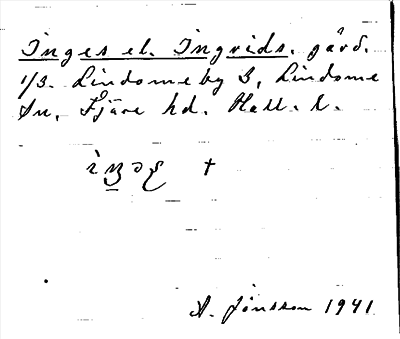 Inges el. Ingvids. gård.
1/3. Lindomeby 3, Lindome
Sn, Fjäre hd. Hall. l.
A. Jönsson 1941